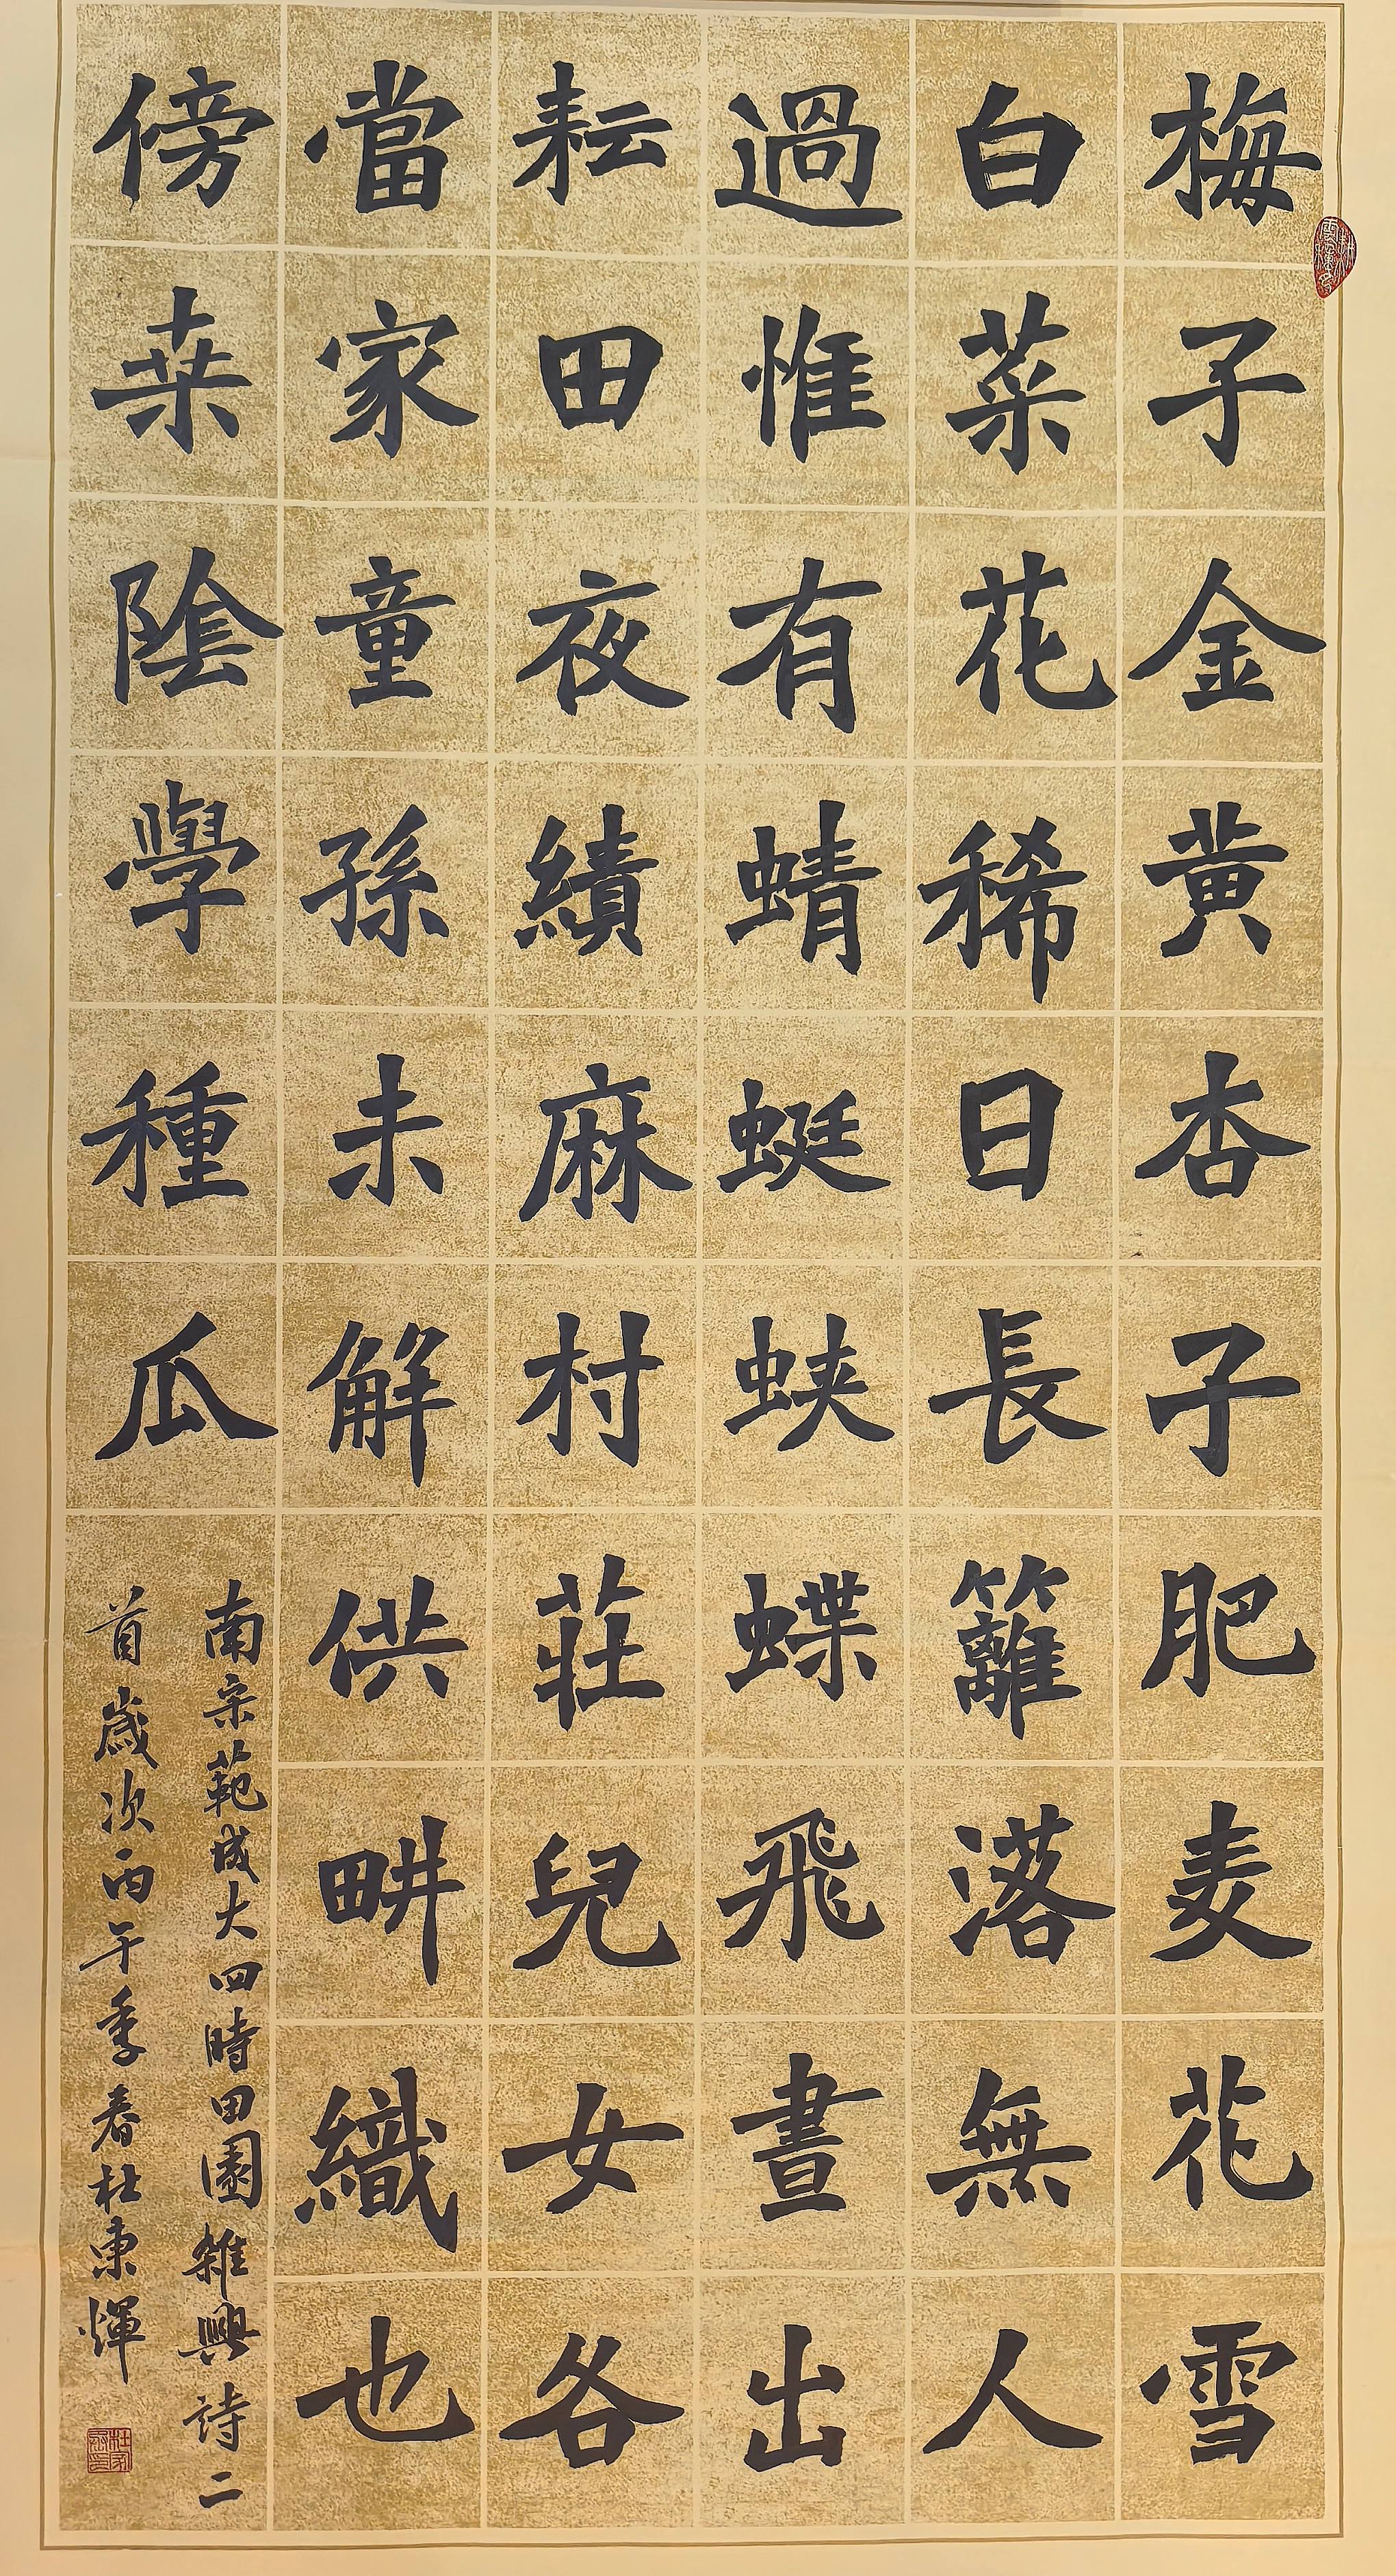 梅子金黄杏子肥麦花雪
白菜花稀日長籬落無人
過惟有蜻蜓蛱蝶飛晝出
耘田夜績麻村莊兒女各
當家童孫未解供畊織也
傍桒陰學種瓜
南宋範成大四時田園雜興詩二
首歲次丙午季春杜東輝